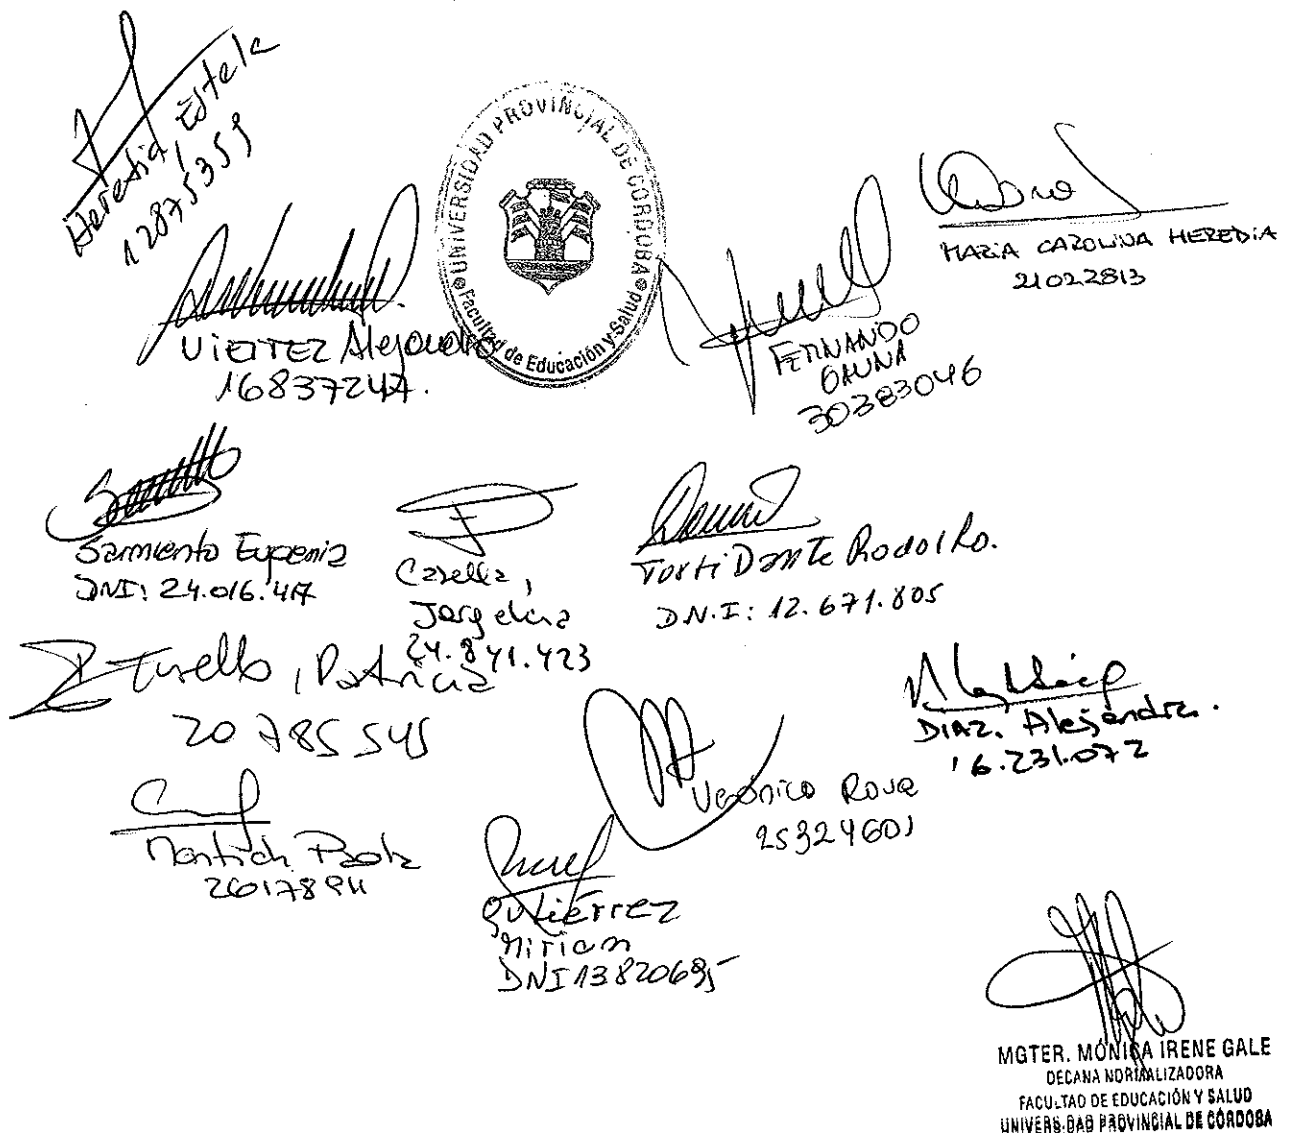 Heredia, Estela
12875359
UNIVERSIDAD PROVINCIAL DE CORDOBA
Facultad de Educación y Salud
VIEITEZ Alejandro
16837247.
FERNANDO
GAUNA
30383046
MARIA CAROLINA HEREDIA
21022813
Sarmiento Eugenia
DNI: 24.016.417
Casella,
Jorgelina
24.841.423
Torti Dante Rodolfo.
D.N.I: 12.671.805
Tusello, Patricia
20785545
DIAZ. Alejandra.
16.231.072
Verónica Roue
25324601
Paola
Gutiérrez
Miriam
DNI 13820695
MGTER. MÓNICA IRENE GALE
DECANA NORMALIZADORA
FACULTAD DE EDUCACIÓN Y SALUD
UNIVERSIDAD PROVINCIAL DE CÓRDOBA